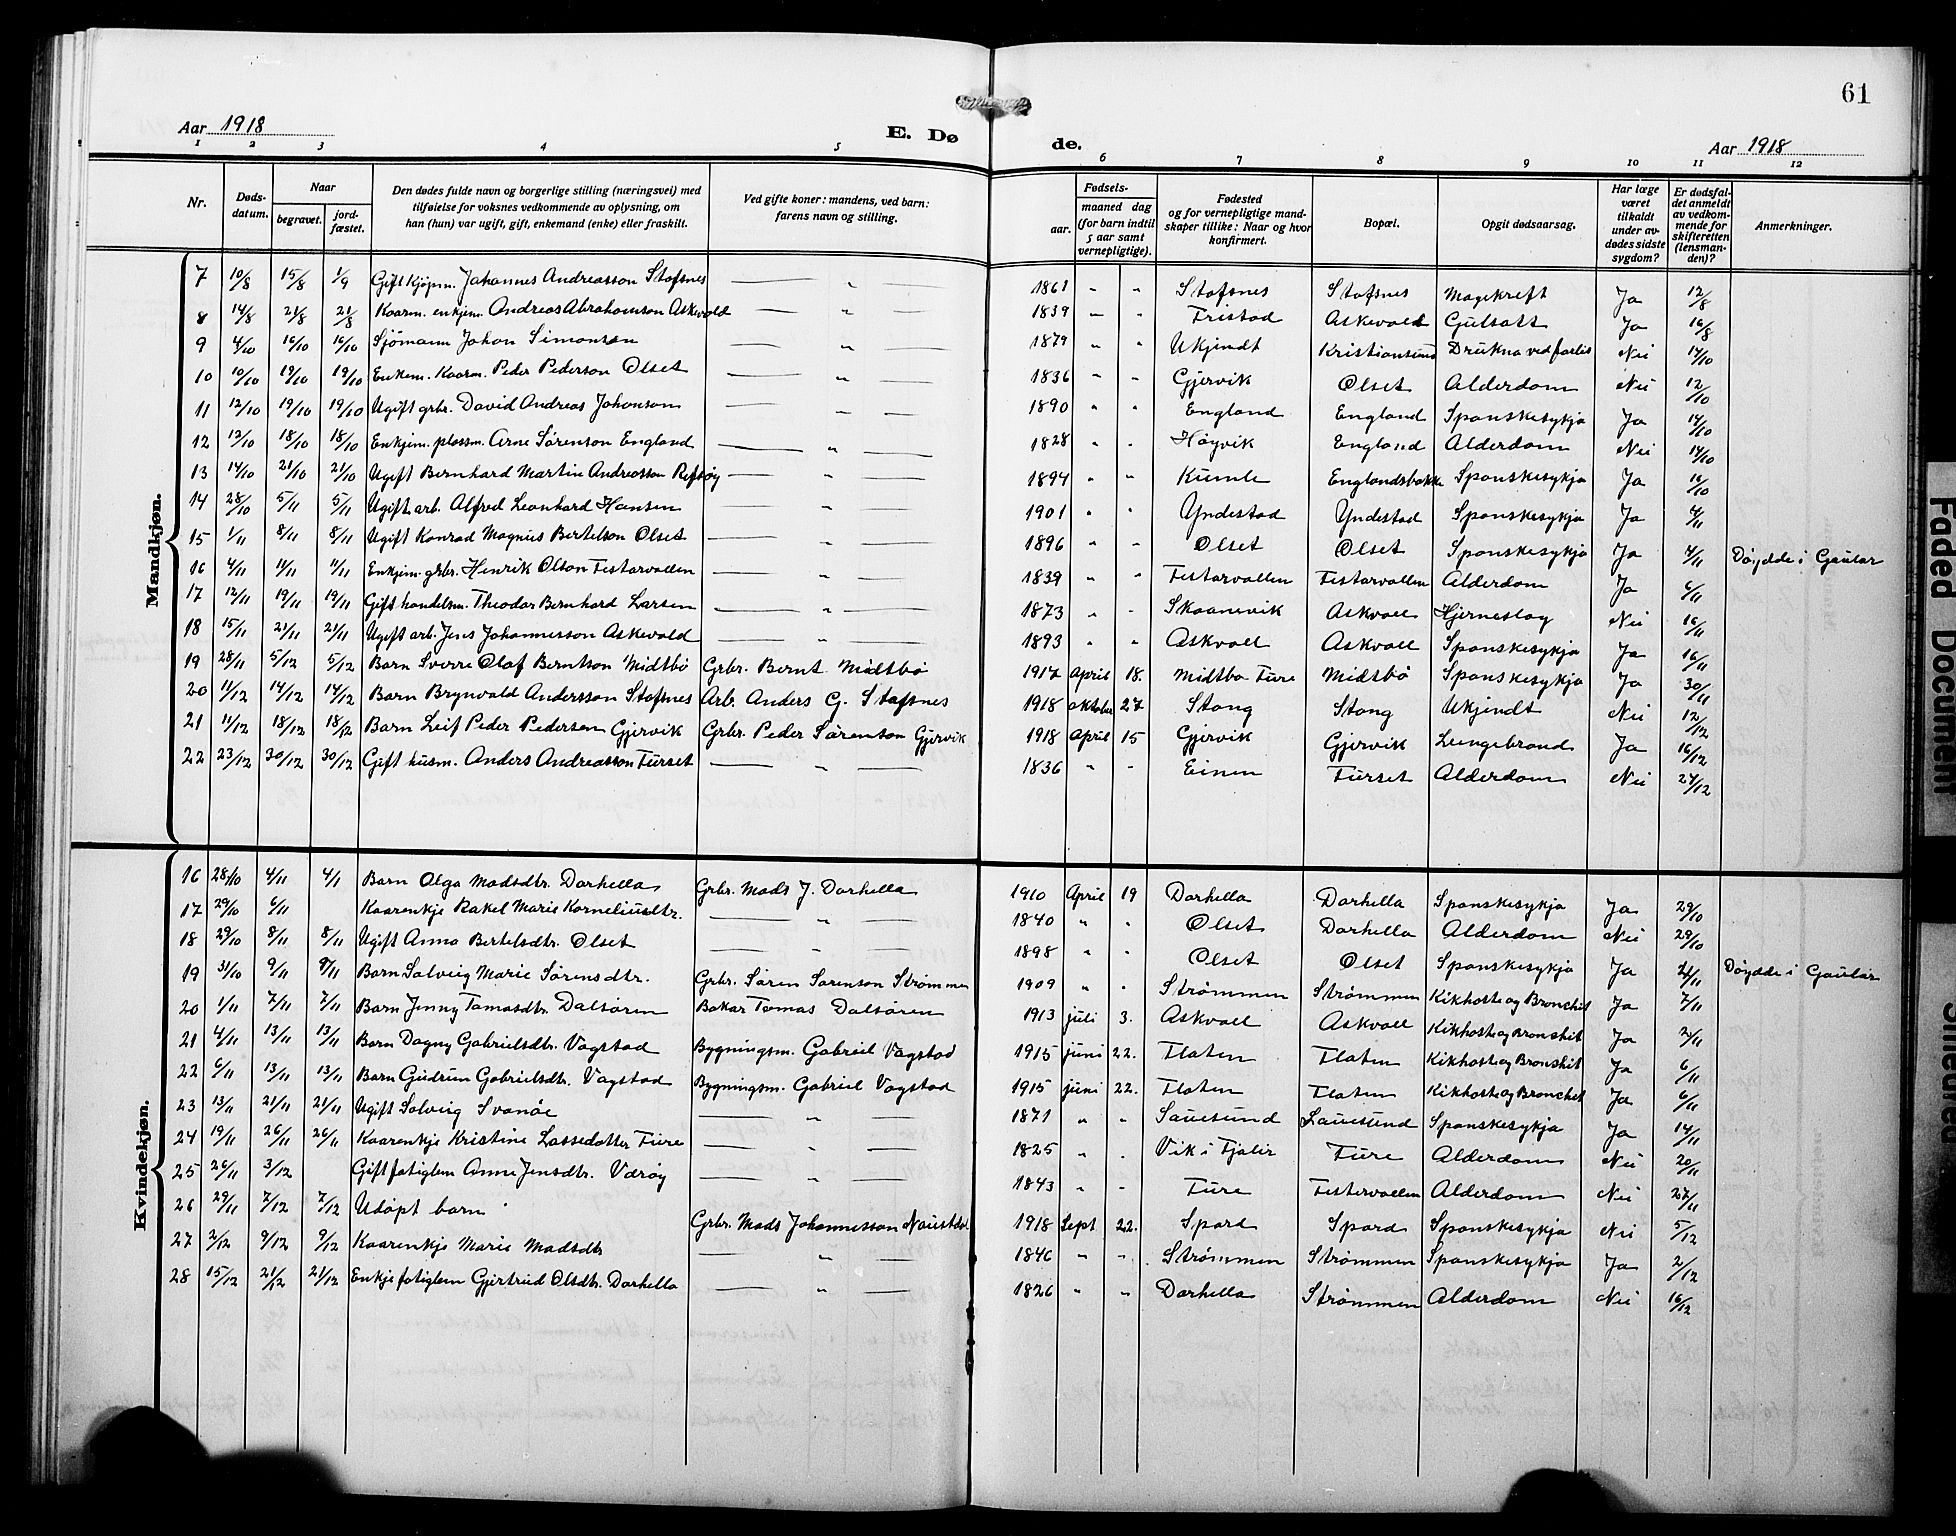 61
Aar 1918
E. Døde.
Aar 1918
1 2 3 4 5 6 7 8 9 10 11 12
Nr. | Døds-datum. | Naar begravet. | jord-fæstet. | Den dødes fulde navn og borgerlige stilling (næringsvei) med tilføielse for voksnes vedkommende av oplysning, om han (hun) var ugift, gift, enkemand (enke) eller fraskilt. | Ved gifte koner: mandens, ved barn: farens navn og stilling. | Fødsels- aar. | maaned dag (for barn indtil 5 aar samt vernepligtige). | Fødested og for vernepligtige mand-skaper tillike: Naar og hvor konfirmert. | Bopæl. | Opgit dødsaarsag. | Har læge været tilkaldt under av-dødes sidste sygdom? | Er dødsfal-det anmeldt av vedkom-mende for skifteretten (lensman-den)? | Anmerkninger.
Mandkjøn.
7 10/8 15/8 1/9 Gift Kjøpm. Johannes Andreasson Stafsnes — " — 1861 " " Stafsnes Stafsnes Magekreft Ja 12/8
8 14/8 21/8 21/8 Kaarm. enkjem. Andreas Abrahamson Askevold — " — 1839 " " Fristad Askevold Gulsott Ja 16/8
9 4/10 16/10 16/10 Sjömann Johan Simonson — " — 1879 " " Ukjendt Kristiansund Drukna ved forlis Nei 14/10
10 10/10 19/10 19/10 Enkem. Kaarm. Peder Pederson Olset — " — 1836 " " Gjervik Olset Alderdom Nei 12/10
11 12/10 19/10 19/10 Ugift grbr. David Andreas Johanson — " — 1890 " " England England Spanskesykja Ja 14/10
12 12/10 18/10 18/10 Enkjem. plassm. Arne Sørenson England — " — 1828 " " Høyvik England Alderdom Nei 14/10
13 14/10 21/10 21/10 Ugift Bernhard Martin Andreasson Refsøy — " — 1894 " " Kumle Englandsbakke Spanskesykja Ja 16/10
14 28/10 5/11 5/11 Ugift arb. Alfred Leonhard Hansen — " — 1901 " " Yndestad Yndestad Spanskesykja Ja 4/11
15 1/11 8/11 8/11 Ugift Konrad Magnus Bertelson Olset — " — 1896 " " Olset Olset Spanskesykja Ja 4/11 Døydde i Gaular
16 4/11 11/11 11/11 Enkjem. grbr. Henrik Olson Festarvollen — " — 1839 " " Festarvollen Festarvollen Alderdom Ja 6/11
17 12/11 19/11 19/11 Gift handelsm. Theodor Bernhard Larsen — " — 1873 " " Skaanevik Askvoll Hjerneslag Nei 16/11
18 15/11 21/11 21/11 Ugift arb. Jens Johannesson Askevold — " — 1893 " " Askvoll Askvoll Spanskesykja Ja 16/11
19 28/11 5/12 5/12 Barn Sverre Olaf Berntson Midtbø Grbr. Bernt Midtbø 1917 April 18. Midtbø Fure Midtbö Spanskesykja Ja 30/11
20 11/12 14/12 14/12 Barn Brynvald Andersson Stafsnes Arb. Anders G. Stafsnes 1918 oktober 27 Stong Stong Ukjendt Nei 12/12
21 11/12 18/12 18/12 Barn Leif Peder Pedersen Gjervik Grbr. Peder Sørenson Gjervik 1918 April 15 Gjervik Gjervik Lungebrand Ja 16/12
22 23/12 30/12 30/12 Gift husm. Anders Andreasson Furset — " — 1836 " " Einen Furset Alderdom Nei 27/12
Kvindekjøn.
16 28/10 4/11 4/1 Barn Olga Madsdtr. Dorhella Grbr. Mads J. Dorhella 1910 April 19 Dorhella Dorhella Spanskesykja Ja 29/10
17 29/10 6/11 Kaarenkje Rakel Marie Korneliusdtr. — " — 1840 " " Olset Dorhella Alderdom Nei 29/10
18 29/10 8/11 8/11 Ugift Anna Bertelsdtr. Olset — " — 1898 " " Olset Olset Spanskesykja Ja 4/11 Døydde i Gaular
19 31/10 9/11 9/11 Barn Solveig Marie Sørensdtr. Grbr. Søren Sørenson Strømmen 1909 " " Strømmen Strømmen Kikhoste og Bronchit Ja 7/11
20 1/11 7/11 7/11 Barn Jenny Tomasdtr. Dalsøren Bakar Tomas Dalsøren 1913 juli 3. Askvoll Askvoll Kikhoste og Bronchit Ja 2/11
21 4/11 13/11 13/11 Barn Dagny Gabrielsdtr. Vagstad Bygningsm. Gabriel Vagstad 1915 juni 22. Flaten Flaten Kikhoste og Bronchit Ja 6/11
22 6/11 13/11 13/11 Barn Gudrun Gabrielsdtr. Vagstad Bygningsm. Gabriel Vagstad 1915 juni 22. Flaten Flaten Kikhoste og Bronchit Ja 6/11
23 13/11 21/11 21/11 Ugift Solveig Svanøe — " — 1871 " " Sauesund Sauesund Spanskesykja Ja 14/11
24 19/11 26/11 26/11 Kaarenkje Kristine Lassedotter Fure — " — 1825 " " Vik i Fjaler Fure Alderdom Nei 20/11
25 26/11 3/12 Gift fatiglem Anne Jensdtr. Værøy — " — 1843 " " Fure Festervollen Alderdom Nei 27/11
26 29/11 7/12 7/12 Udøpt barn Grbr. Mads Johannesson Naustdal 1918 Sept 22. Spord Spord Spanskesykja Nei 5/12
27 2/12 9/12 9/12 Kaarenkje Marie Madsdtr — " — 1846 " " Strømmen Strømmen Spanskesykja Ja 2/12
28 15/12 21/12 21/12 Enkje fatiglem Gjertrud Olsdtr. Dorhella — " — 1826 " " Dorhella Strømmen Alderdom Nei 16/12
Faded Document